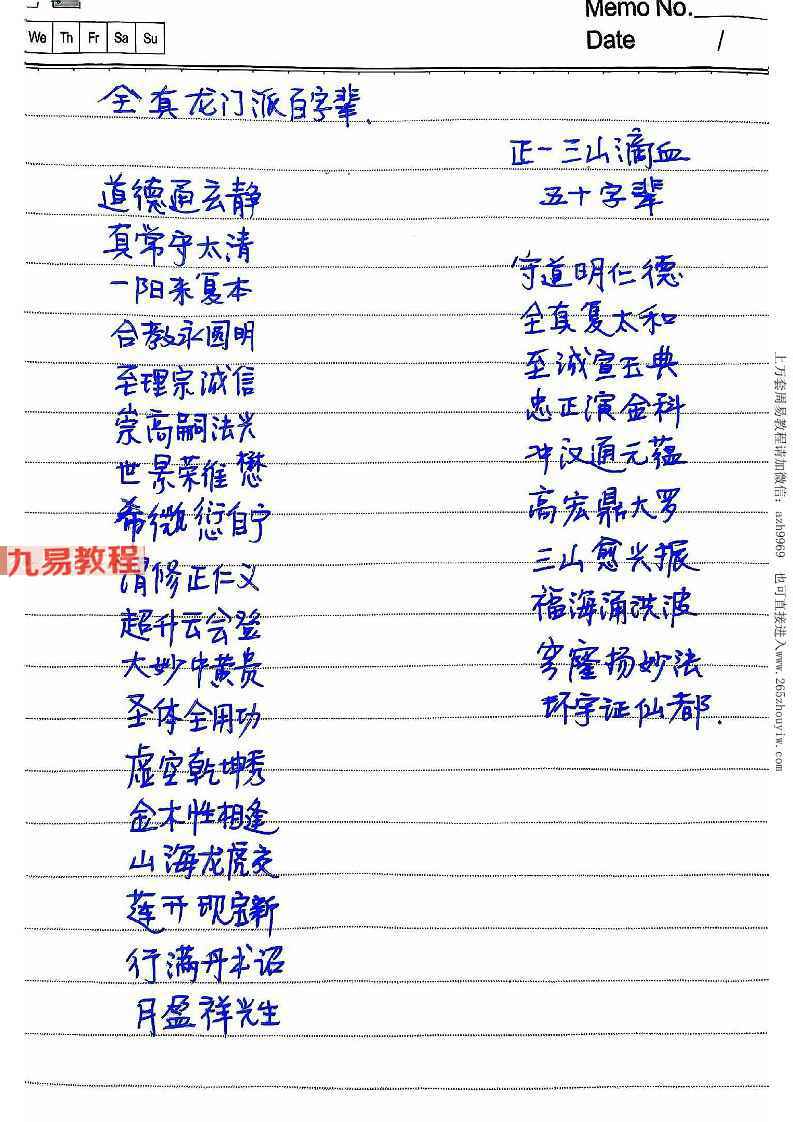 Memo No.
We Th Fr Sa Su
Date /
全真龙门派百字辈.
道德通玄静
真常守太清
一阳来复本
合教永圆明
至理宗诚信
崇高嗣法兴
世景荣惟懋
希微衍自宁
清修正仁义
超升云会登
大妙中黄贵
圣体全用功
虚空乾坤秀
金木性相逢
山海龙虎交
莲开现宝新
行满丹书诏
月盈祥光生
正一三山滴血
五十字辈
守道明仁德
全真复太和
至诚宣玉典
忠正演金科
冲汉通元蕴
高宏鼎大罗
三山愈兴振
福海涌洪波
穹窿扬妙法
环宇证仙都.
九易教程
上万套周易教程请加微信:azh9969 也可直接进入www.265zhouyiw.com